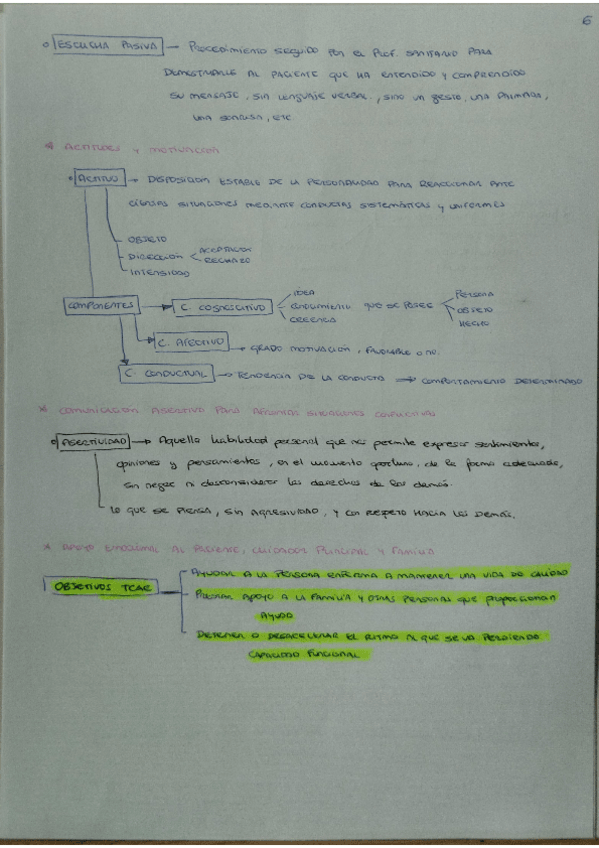 6
ESCUCHA PASIVA → PROCEDIMIENTO SEGUIDO POR EL PROF. SANITARIO PARA
DEMOSTRARLE AL PACIENTE QUE HA ENTENDIDO Y COMPRENDIDO
SU MENSAJE, SIN LENGUAJE VERBAL, SINO UN GESTO, UNA PALMADA,
UNA SONRISA, ETC
* ACTITUDES Y MOTIVACIÓN
ACTITUD → DISPOSICION ESTABLE DE LA PERSONALIDAD PARA REACCIONAR ANTE
CIERTAS SITUACIONES MEDIANTE CONDUCTAS SISTEMÁTICAS Y UNIFORMES
- OBJETO
- DIRECCIÓN < ACEPTACIÓN
RECHAZO
- INTENSIDAD
COMPONENTES → C. COGNOSCITIVO
IDEA
CONOCIMIENTO QUE SE POSEE
CREENCIA
PERSONA
OBJETO
HECHO
C. AFECTIVO → GRADO MOTIVACIÓN, FAVORABLE O NO.
C. CONDUCTUAL → TENDENCIA DE LA CONDUCTA → COMPORTAMIENTO DETERMINADO
* COMUNICACIÓN ASERTIVA PARA AFRONTAR SITUACIONES CONFLICTIVAS
ASERTIVIDAD → Aquella habilidad personal que nos permite expresar sentimientos,
opiniones y pensamientos, en el momento oportuno, de la forma adecuada,
sin negar ni desconsiderar los derechos de los demás.
LO QUE SE PIENSA, SIN AGRESIVIDAD, Y CON RESPETO HACIA LOS DEMÁS.
* APOYO EMOCIONAL AL PACIENTE, CUIDADOR PRINCIPAL Y FAMILIA
OBJETIVOS TCAE
AYUDAR A LA PERSONA ENFERMA A MANTENER UNA VIDA DE CALIDAD
PRESTAR APOYO A LA FAMILIA Y OTRAS PERSONAS QUE PROPORCIONAN
AYUDA
DETENER O DESACELERAR EL RITMO AL QUE SE VA PERDIENDO
CAPACIDAD FUNCIONAL